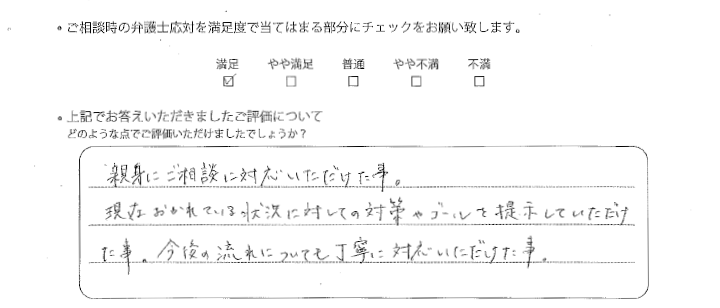 • ご相談時の弁護士応対を満足度で当てはまる部分にチェックをお願い致します。
満足 やや満足 普通 やや不満 不満
☑ □ □ □ □
• 上記でお答えいただきましたご評価について
どのような点でご評価いただけましたでしょうか？
親身にご相談に対応いただけた事。
現在おかれている状況に対しての対策やゴールを提示していただけ
た事。今後の流れについても丁寧に対応いただけた事。